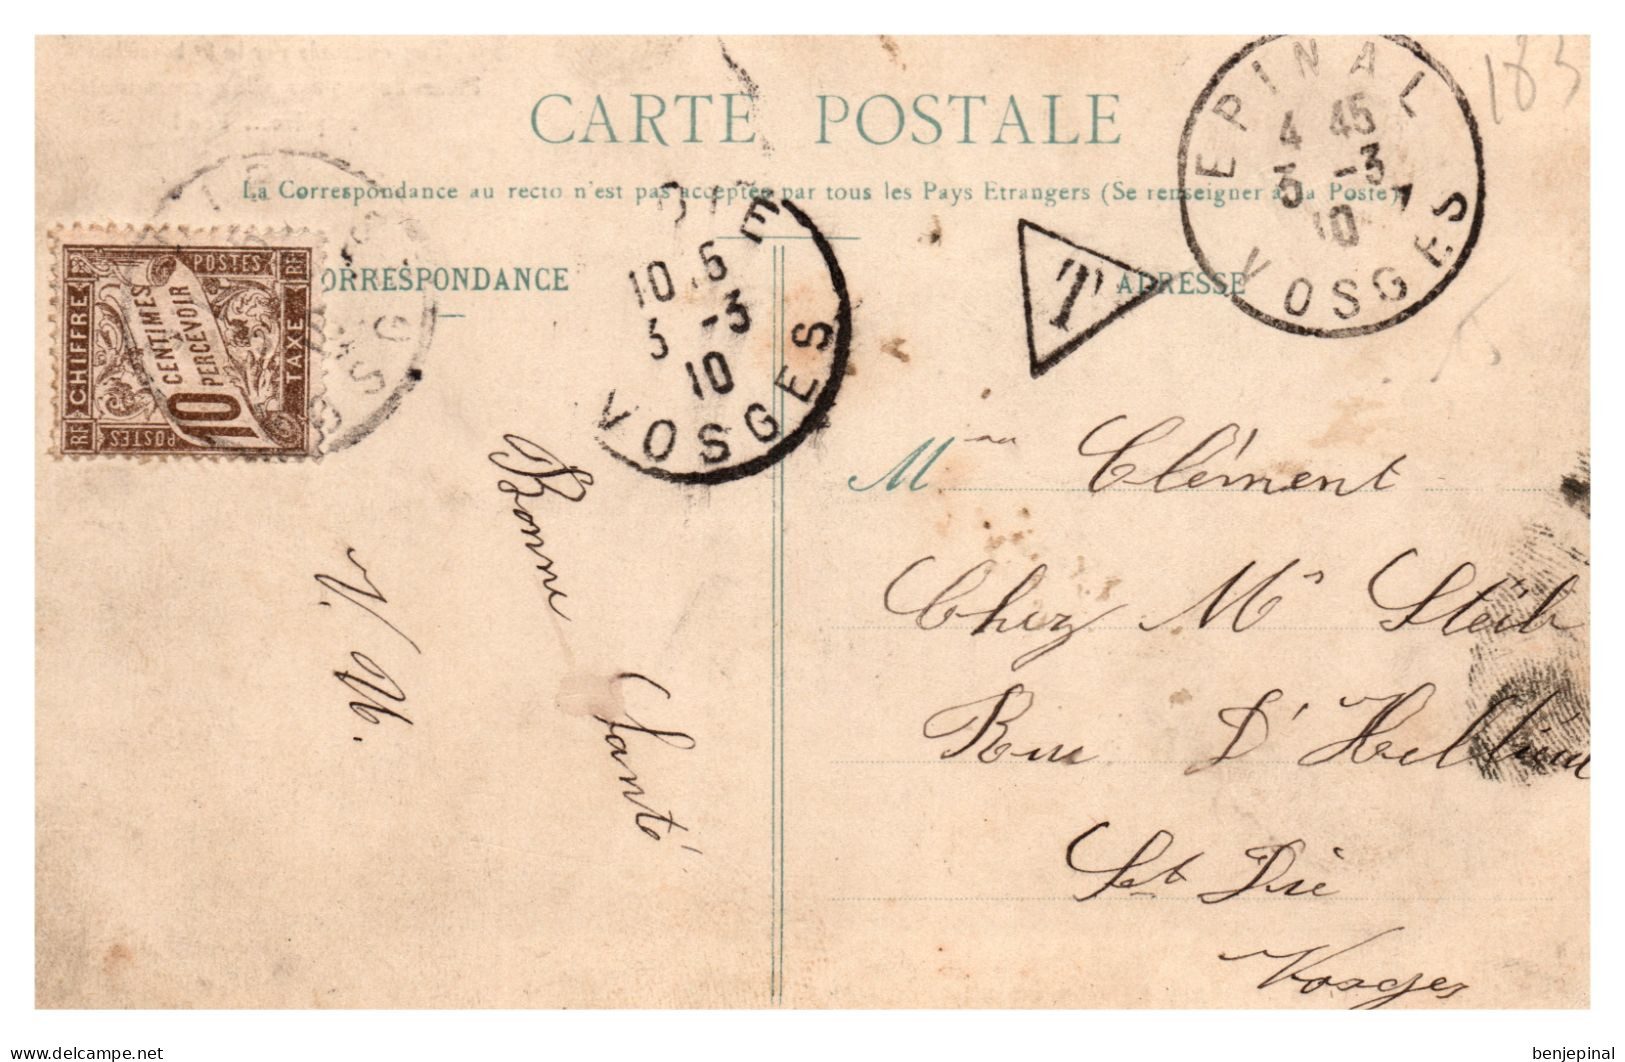 CARTE POSTALE
La Correspondance au recto n'est pas acceptée par tous les Pays Etrangers (Se renseigner à la Poste)
EPINAL
4 45
5 -3
10
VOSGES
183
T
CORRESPONDANCE
ADRESSE
DIE
5 -3
10
VOSGES
POSTES
CHIFFRE
TAXE
RF
10 CENTIMES
À PERCEVOIR
POSTES
RF
Bonne Santé
V. M.
Mme Clément
Chez Mr Steib
Rue D'Hellieule
St Dié
Vosges
www.delcampe.net
benjepinal